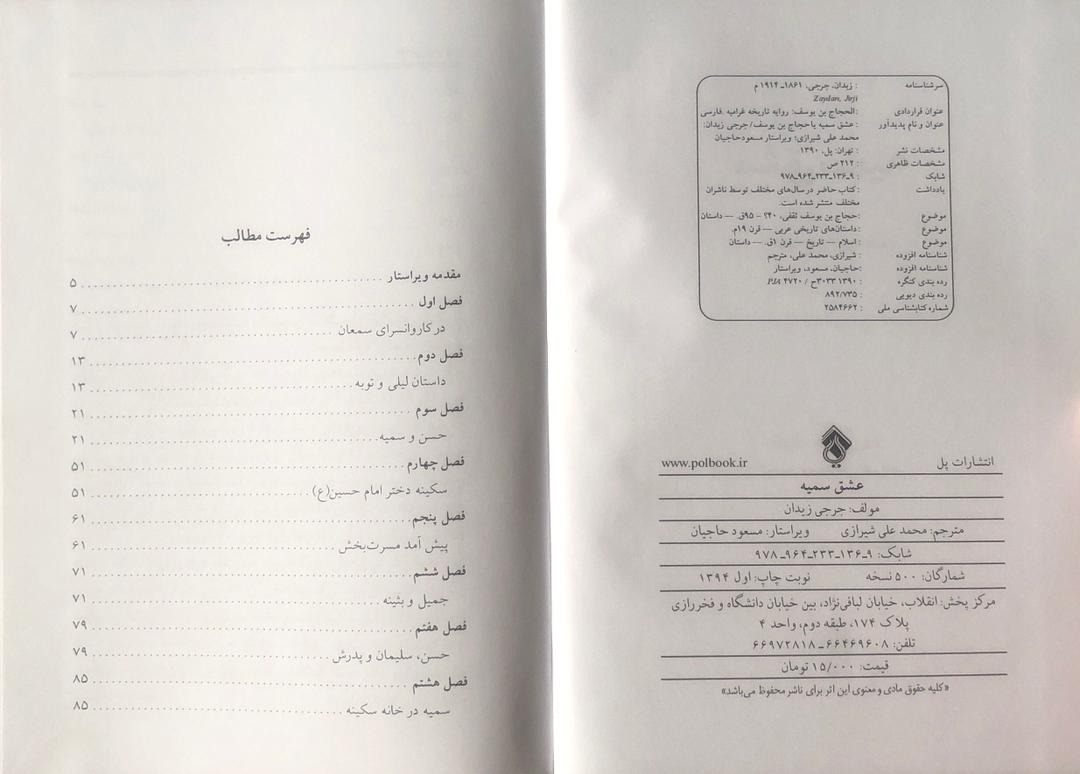 سرشناسنامه : زیدان، جرجی، ۱۸۶۱ـ ۱۹۱۴ م
Zaydan, Jirji
عنوان قراردادی : الحجاج بن یوسف: روایه تاریخه غرامیه .فارسی
عنوان و نام پدیدآور : عشق سمیه یا حجاج بن یوسف/جرجی زیدان:
محمد علی شیرازی؛ ویراستار مسعود حاجیان
مشخصات نشر : تهران: پل، ۱۳۹۰
مشخصات ظاهری : ۲۱۲ ص
شابک : ۹ـ۱۳۶ـ۲۳۳ـ۹۶۴ـ۹۷۸
یادداشت : کتاب حاضر در سال‌های مختلف توسط ناشران
مختلف منتشر شده است.
موضوع : حجاج بن یوسف ثقفی، ۴۰؟ - ۹۵ق. — داستان
موضوع : داستان‌های تاریخی عربی — قرن ۱۹م.
موضوع : اسلام — تاریخ — قرن ۱ق. — داستان
شناسنامه افزوده : شیرازی، محمد علی، مترجم
شناسنامه افزوده : حاجیان، مسعود، ویراستار
رده بندی کنگره : ۱۳۹۰ ۳۰۳۳ح / PJA ۴۷۲۰
رده بندی دیویی : ۸۹۲/۷۳۵
شماره کتابشناسی ملی : ۲۵۸۴۶۶۲
انتشارات پل www.polbook.ir
عشق سمیه
مولف: جرجی زیدان
مترجم: محمد علی شیرازی ویراستار: مسعود حاجیان
شابک: ۹ـ۱۳۶ـ۲۳۳ـ۹۶۴ـ۹۷۸
شمارگان: ۵۰۰ نسخه نوبت چاپ: اول ۱۳۹۴
مرکز پخش: انقلاب، خیابان لبافی‌نژاد، بین خیابان دانشگاه و فخررازی
پلاک ۱۷۴، طبقه دوم، واحد ۴
تلفن: ۶۶۴۶۹۶۰۸ ـ ۶۶۹۷۲۸۱۸
قیمت: ۱۵/۰۰۰ تومان
«کلیه حقوق مادی و معنوی این اثر برای ناشر محفوظ می‌باشد»
فهرست مطالب
مقدمه ویراستار ........ ۵
فصل اول ........ ۷
در کاروانسرای سمعان ........ ۷
فصل دوم ........ ۱۳
داستان لیلی و توبه ........ ۱۳
فصل سوم ........ ۲۱
حسن و سمیه ........ ۲۱
فصل چهارم ........ ۵۱
سکینه دختر امام حسین(ع) ........ ۵۱
فصل پنجم ........ ۶۱
پیش آمد مسرت‌بخش ........ ۶۱
فصل ششم ........ ۷۱
جمیل و بثینه ........ ۷۱
فصل هفتم ........ ۷۹
حسن، سلیمان و پدرش ........ ۷۹
فصل هشتم ........ ۸۵
سمیه در خانه سکینه ........ ۸۵